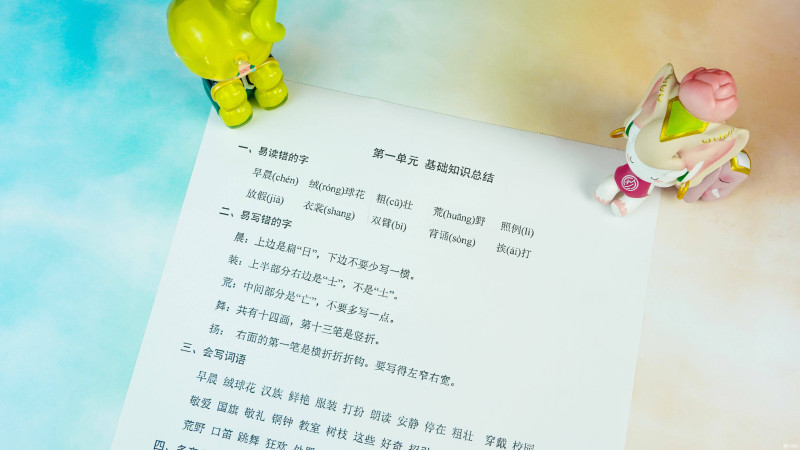 第一单元 基础知识总结
一、易读错的字
早晨(chén) 绒(róng)球花 粗(cū)壮 荒(huāng)野 照例(lì)
放假(jià) 衣裳(shang) 双臂(bì) 背诵(sòng) 挨(ái)打
二、易写错的字
晨：上边是扁“日”，下边不要少写一横。
装：上半部分右边是“士”，不是“土”。
荒：中间部分是“亡”，不要多写一点。
舞：共有十四画，第十三笔是竖折。
扬： 右面的第一笔是横折折折钩。要写得左窄右宽。
三、会写词语
早晨 绒球花 汉族 鲜艳 服装 打扮 朗读 安静 停在 粗壮 穿戴 校园
敬爱 国旗 敬礼 铜钟 教室 树枝 这些 好奇 招引
荒野 口笛 跳舞 狂欢
四、